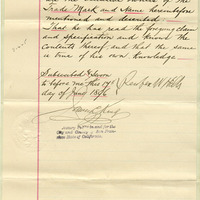 Trade Mark and Name hereinbefore
mentioned and described
That he has read the foregoing claim
and specification and knows the
Contents thereof, and that the same
is true of his own knowledge.
Subscribed & Sworn
to before me this
day of June 18
Notary Public in and for the
City and County San Fran-
cisco State of California.